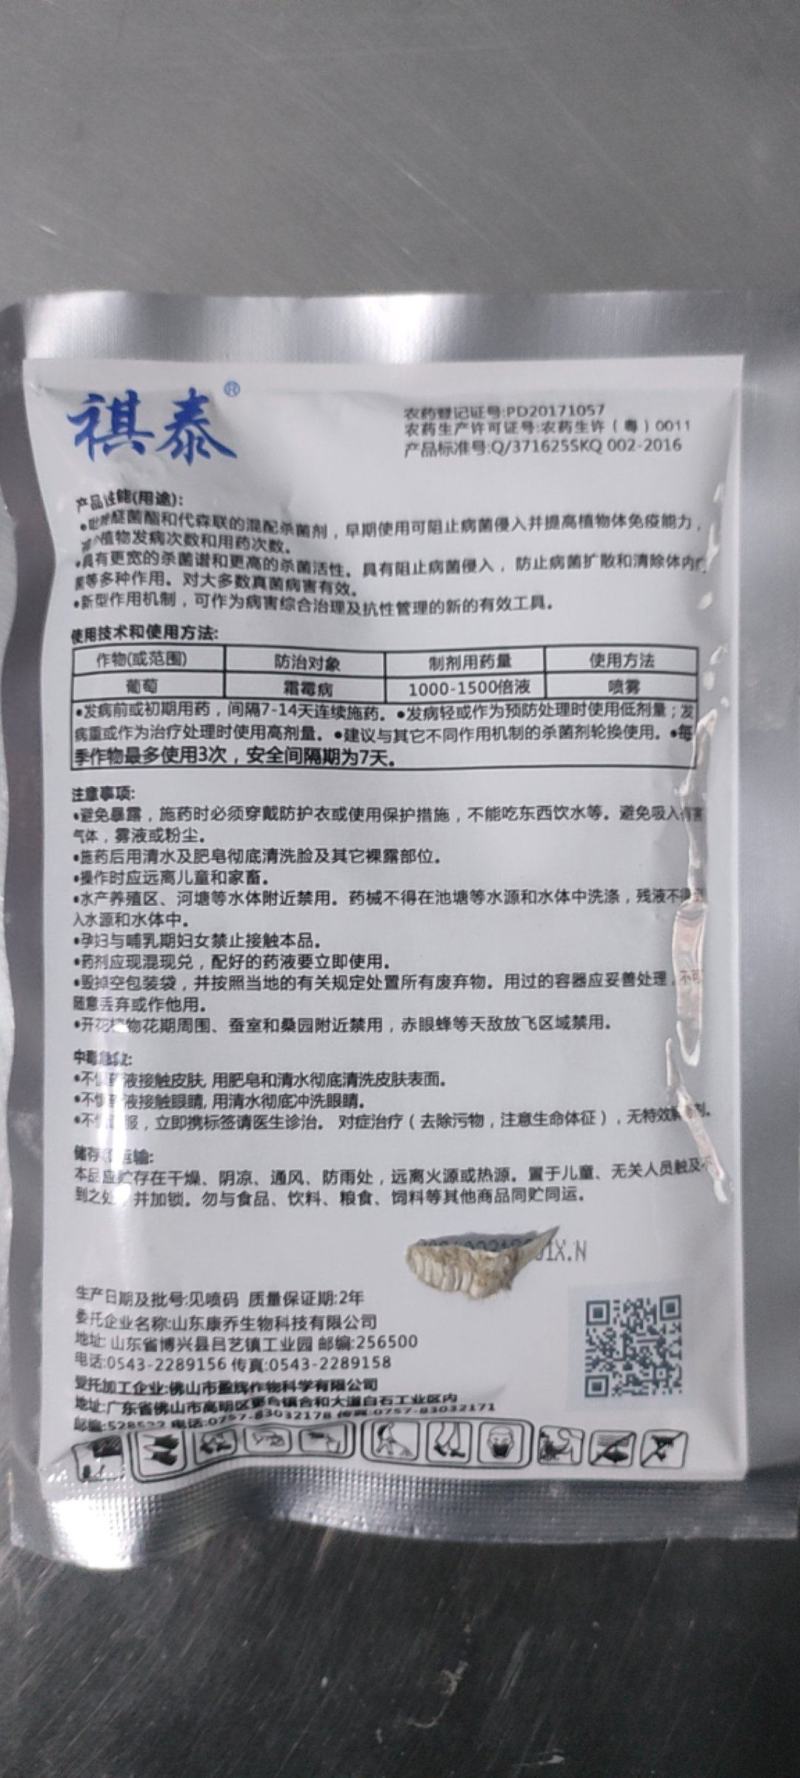 祺泰®
农药登记证号:PD20171057
农药生产许可证号:农药生许(粤)0011
产品标准号:Q/371625SKQ 002-2016
产品性能(用途):
•吡唑醚菌酯和代森联的混配杀菌剂，早期使用可阻止病菌侵入并提高植物体免疫能力，
植物发病次数和用药次数。
•具有更宽的杀菌谱和更高的杀菌活性。具有阻止病菌侵入，防止病菌扩散和清除体内
菌等多种作用。对大多数真菌病害有效。
•新型作用机制，可作为病害综合治理及抗性管理的新的有效工具。
使用技术和使用方法:
作物(或范围) 防治对象 制剂用药量 使用方法
葡萄 霜霉病 1000-1500倍液 喷雾
•发病前或初期用药，间隔7-14天连续施药。•发病轻或作为预防处理时使用低剂量；发
病重或作为治疗处理时使用高剂量。•建议与其它不同作用机制的杀菌剂轮换使用。•每
季作物最多使用3次，安全间隔期为7天。
注意事项:
•避免暴露，施药时必须穿戴防护衣或使用保护措施，不能吃东西饮水等。避免吸入有害
气体，雾液或粉尘。
•施药后用清水及肥皂彻底清洗脸及其它裸露部位。
•操作时应远离儿童和家畜。
•水产养殖区、河塘等水体附近禁用。药械不得在池塘等水源和水体中洗涤，残液不得
入水源和水体中。
•孕妇与哺乳期妇女禁止接触本品。
•药剂应现混现兑，配好的药液要立即使用。
•毁掉空包装袋，并按照当地的有关规定处置所有废弃物。用过的容器应妥善处理，不可
随意丢弃或作他用。
•开花植物花期周围、蚕室和桑园附近禁用，赤眼蜂等天敌放飞区域禁用。
中毒急救:
•不慎药液接触皮肤,用肥皂和清水彻底清洗皮肤表面。
•不慎药液接触眼睛,用清水彻底冲洗眼睛。
•不慎误服，立即携标签请医生诊治。对症治疗(去除污物，注意生命体征)，无特效解毒剂。
储存和运输:
本品应贮存在干燥、阴凉、通风、防雨处，远离火源或热源。置于儿童、无关人员触及不
到之处，并加锁。勿与食品、饮料、粮食、饲料等其他商品同贮同运。
1X.N
生产日期及批号:见喷码 质量保证期:2年
委托企业名称:山东康乔生物科技有限公司
地址:山东省博兴县吕艺镇工业园 邮编:256500
电话:0543-2289156 传真:0543-2289158
受托加工企业:佛山市盈辉作物科学有限公司
地址:广东省佛山市高明区更合镇合和大道白石工业区内
邮编:528522 电话:0757-83032178 传真:0757-83032171